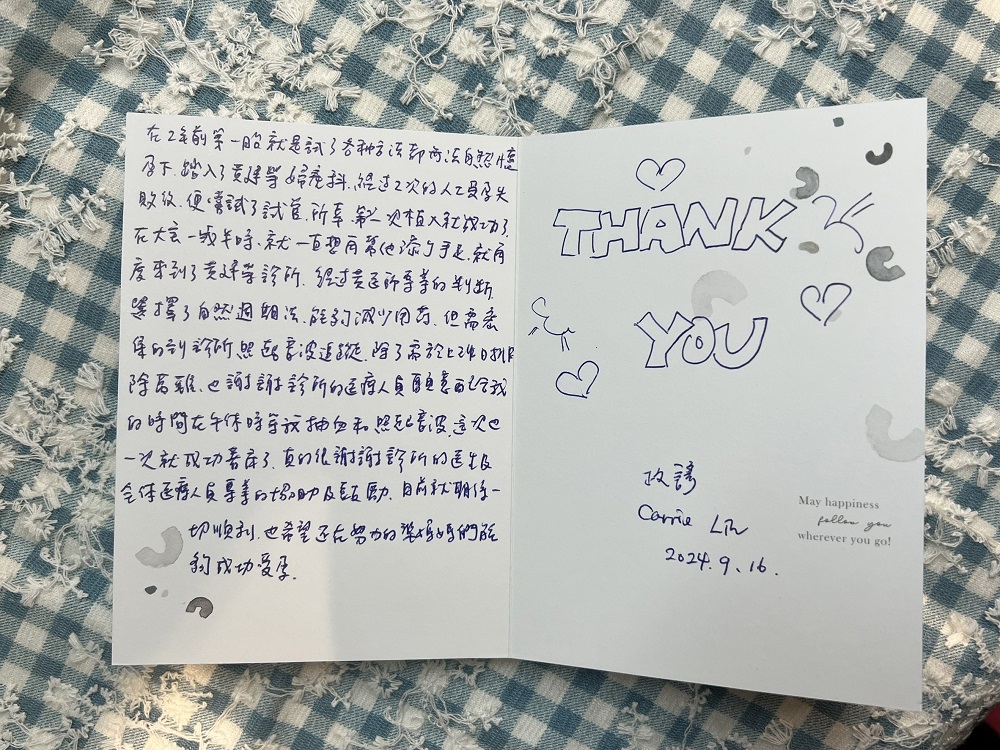 在2年前第一胎就是試了各种方法却而法自然懷
孕下.踏入了黃建榮婦產科.經过2次的人工受孕失
敗後.便嘗試了試管.所幸.第一次植入就成功了.
在大宝一歲半時.就一直想再幫他添个手足.就再
度來到了黃建榮診所.經过黃医師專業的判断.
選擇了自然週期法.能夠減少用药.但需密
集的到診所照超音波追蹤.除了需於上班日排
除萬難.也謝謝診所的医療人員願意配合我
的時間在午休時等該抽血和照超音波.這次也
一次就成功着床了.真的很謝謝診所的医生及
全体医療人員專業的協助及鼓勵.目前就期待一
切順利.也希望還在努力的準媽媽們能
夠成功受孕.
THANK
YOU
Carrie Lin
2024.9.16.
May happiness
follow you
wherever you go!